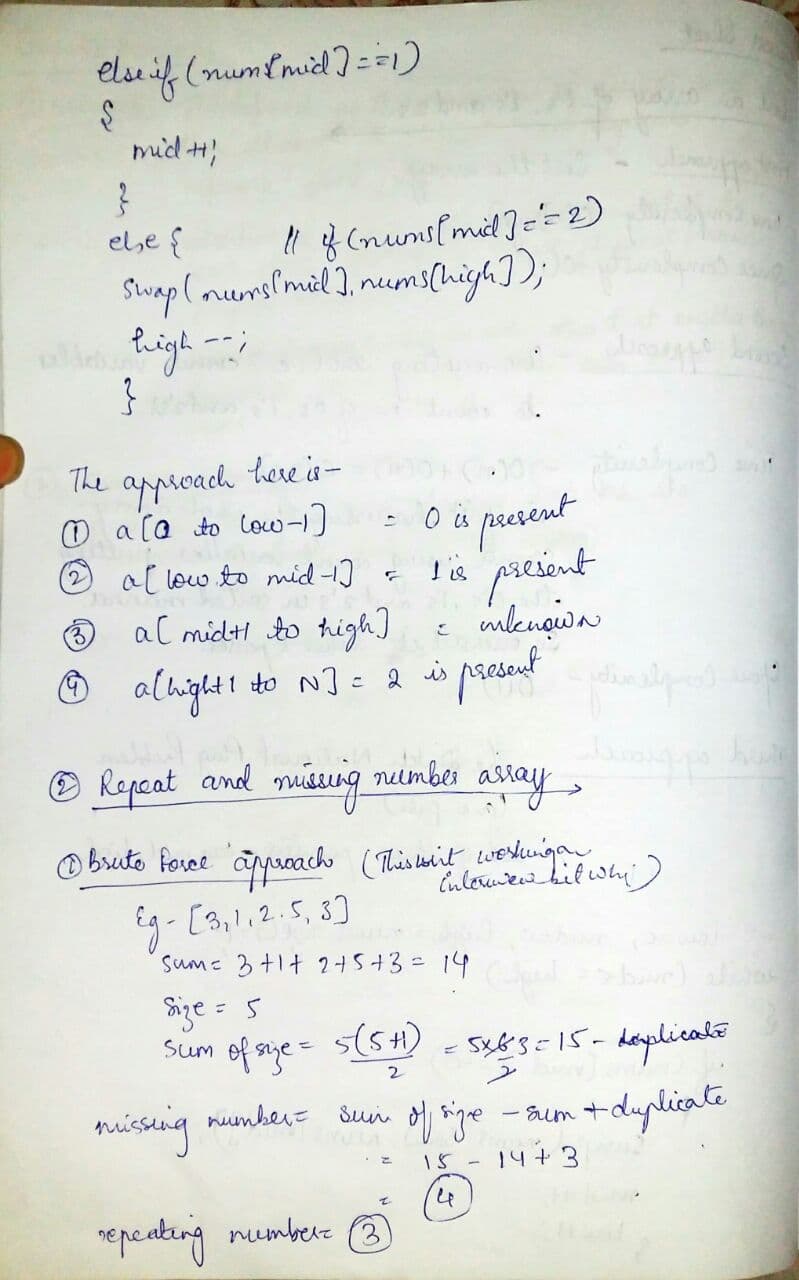 else if (nums[mid] == 1)
{
mid ++;
}
else { // if (nums[mid] == 2)
Swap (nums[mid], nums[high]);
high --;
}
The approach here is -
① a[0 to low-1] = 0 is present
② a[low to mid-1] = 1 is present
③ a[mid+1 to high] = unknown
④ a[high+1 to N] = 2 is present
② Repeat and missing number array
① Brute force approach (This isn't working on
interview bit why)
Eg - [3,1,2,5,3]
Sum = 3+1+2+5+3 = 14
Size = 5
Sum of size = 5(5+1)/2 = 5x6 3/2 = 15 - duplicate
missing number = sum of size - sum + duplicate
= 15 - 14 + 3
= 4
repeating number = 3